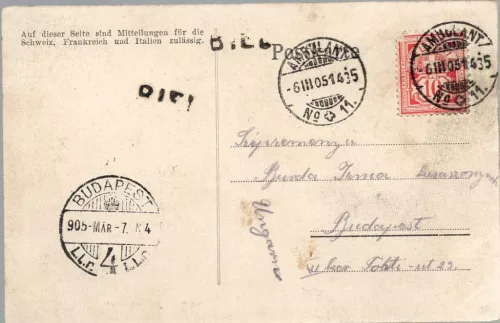 Auf dieser Seite sind Mitteilungen für die
Schweiz, Frankreich und Italien zulässig.
BIEL
Postkarte
BIEL
AMBULANT
-6 III 05 14 35
No 11.
AMBULANT
-6 III 05 14 35
No 11.
BUDAPEST
905 - MÁR - 7. N 4
4
Burda Irma
Budapest
Ungarn